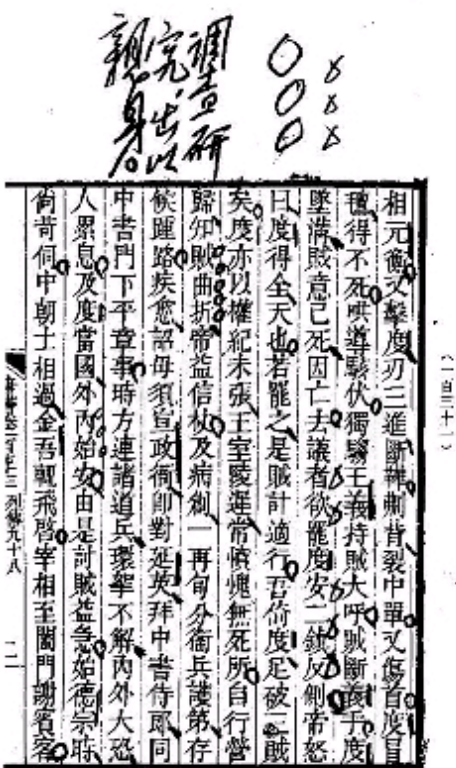 調查研
究，出以
親身。
相元衡又擊度刃三進斷鞾刜背裂中單又傷首度冒
氈得不死哄導駭伏獨騶王義持賊大呼賊斷義手度
墜溝賊意已死因亡去議者欲罷度安二鎮反側帝怒
曰度得全天也若罷之是賊計適行吾倚度足破三賊
矣度亦以權紀未張王室陵遲常憤愧無死所自行營
歸知賊曲折帝益信杖及病創一再旬分衛兵護第存
候踵路疾愈詔毋須宣政衙即對延英拜中書侍郎同
中書門下平章事時方連諸道兵環挐不解內外大恐
人累息及度當國外內始安由是討賊益急始德宗時
尚苛伺中朝士相過金吾輒飛啓宰相至闔門謝賓客
列傳九十八
(一百三十一)